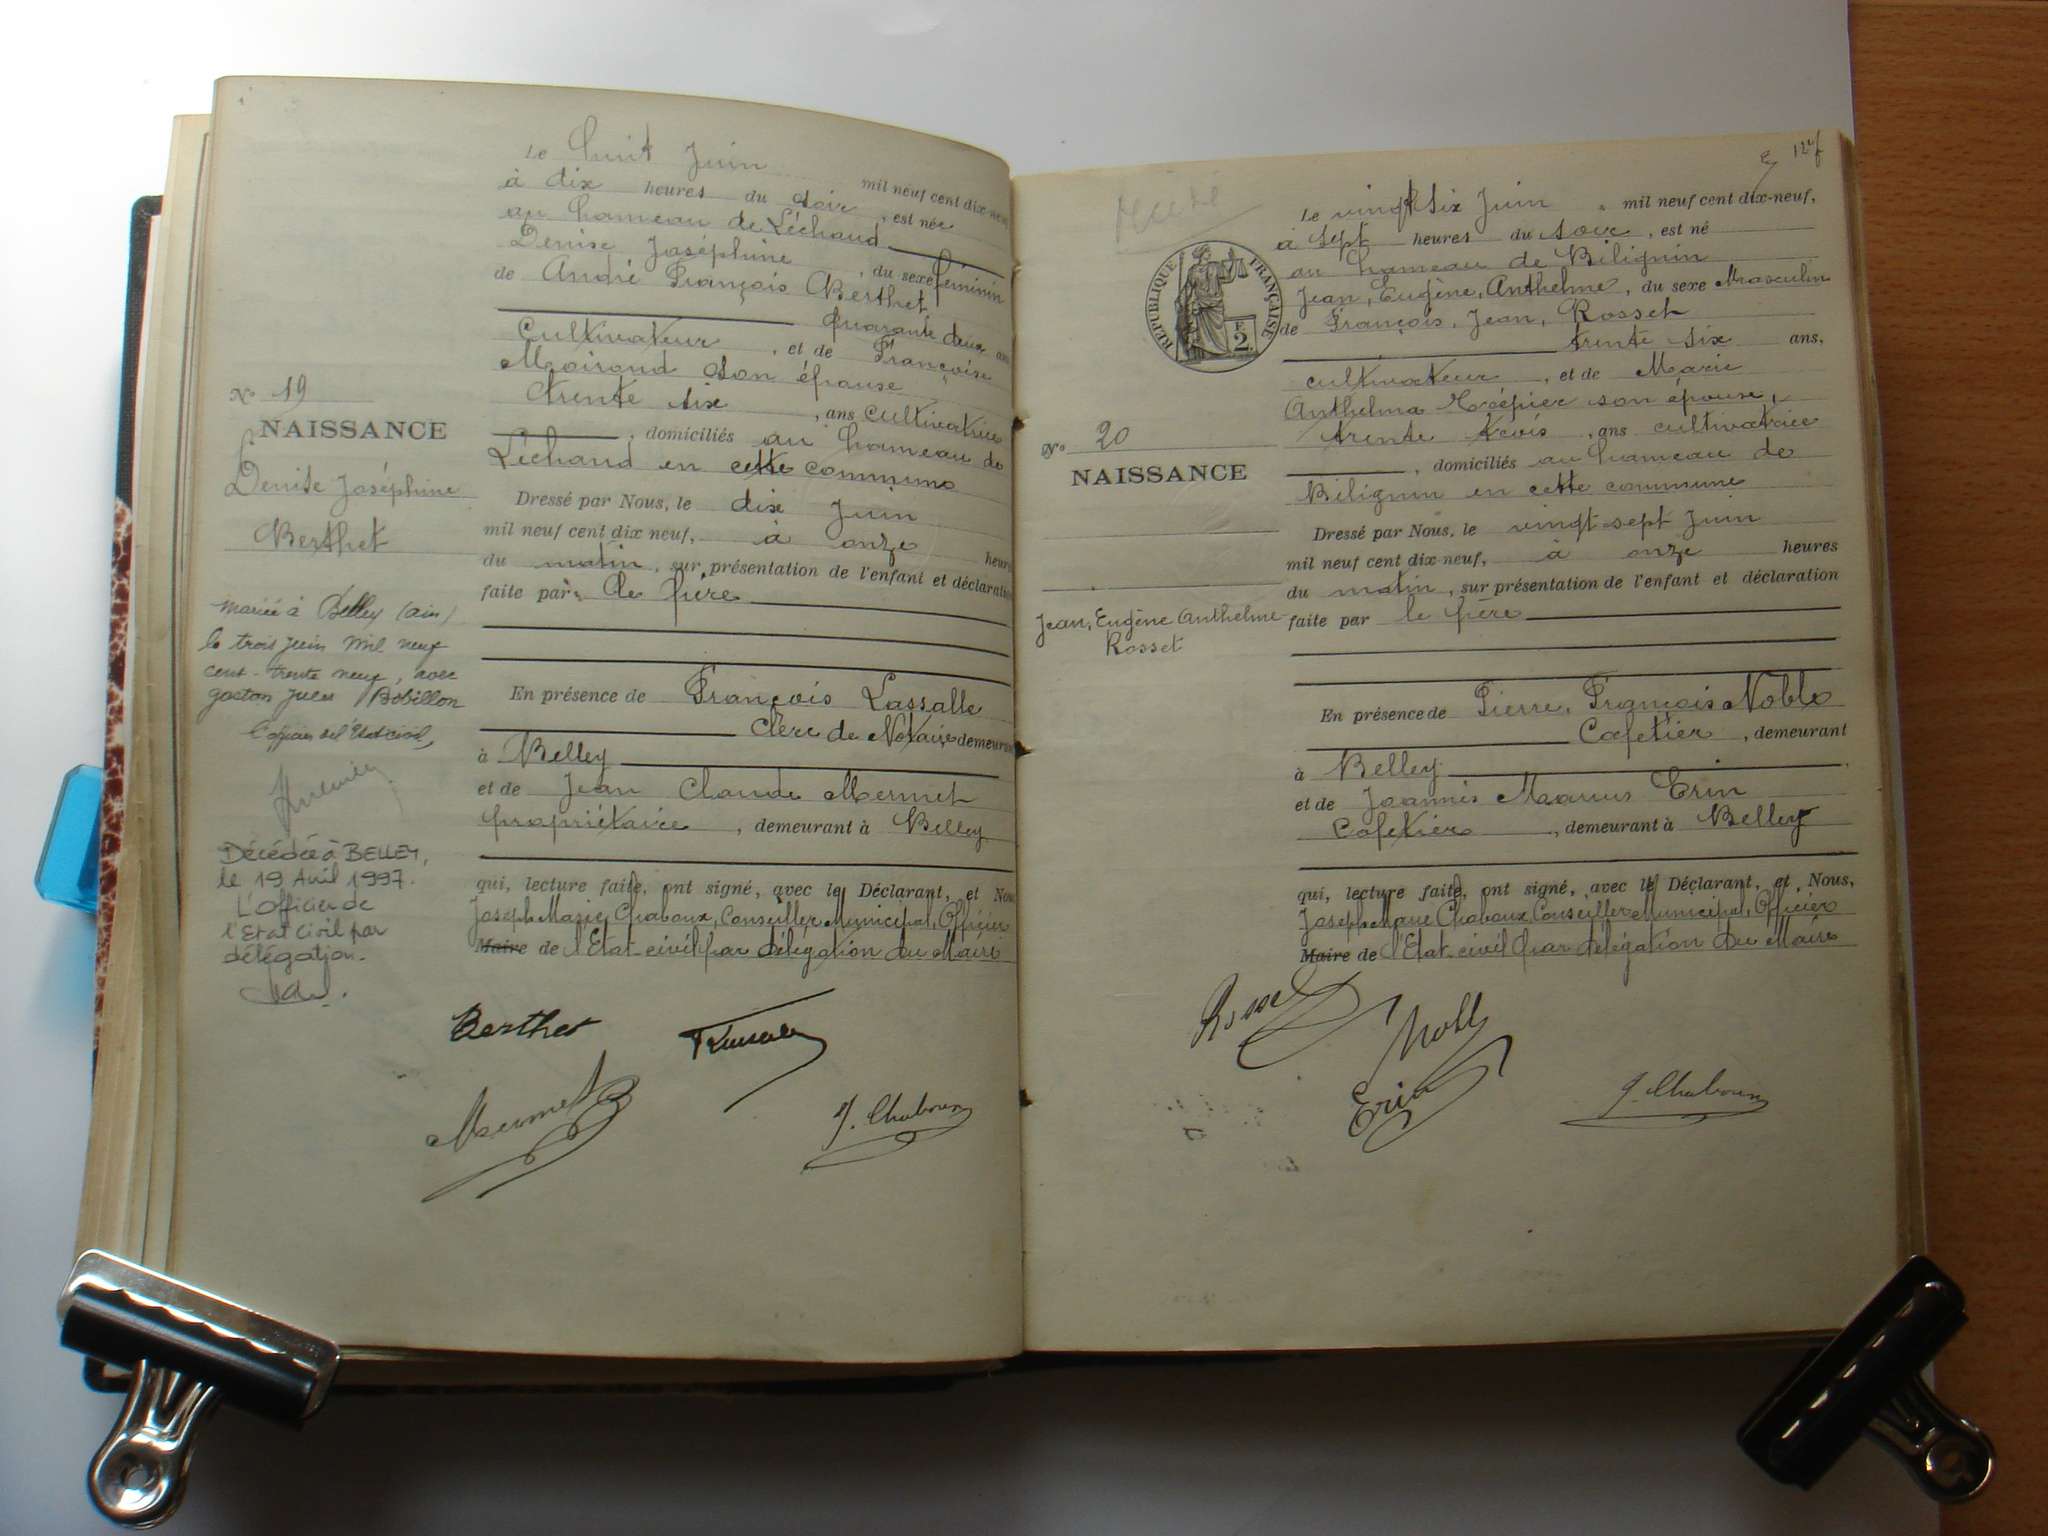 Le huit Juin mil neuf cent dix-neuf
à dix heures du soir, est née
au hameau de Léchaud
Denise Joséphine, du sexe féminin
de André François Berthet,
quarante deux ans
Cultivateur, et de Françoise
Moiroud son épouse
trente six, ans cultivatrice
, domiciliés au hameau de
Léchaud en cette commune
Dressé par Nous, le dix Juin
mil neuf cent dix neuf, à onze heures
du matin, sur présentation de l'enfant et déclaration
faite par le père
En présence de François Lassalle
Clerc de Notaire demeurant
à Belley
et de Jean Claude Mermet
propriétaire, demeurant à Belley
qui, lecture faite, ont signé, avec le Déclarant, et Nous
Joseph Marie Chaboux, Conseiller Municipal, Officier
Maire de l'Etat-civil par délégation du Maire
Berthet
Mermet
J. Chaboux
N° 19
NAISSANCE
Denise Joséphine
Berthet
mariée à Belley (ain)
le trois juin mil neuf
cent-trente neuf, avec
gaston Jules Bobillon
l'officier de l'Etat civil,
Décédée à BELLEY,
le 19 Avril 1997.
L'officier de
l'Etat Civil par
délégation.
RÉPUBLIQUE FRANÇAISE
2
Le vingt six Juin mil neuf cent dix-neuf,
à sept heures du soir, est né
au hameau de Bilignin
Jean, Eugène, Anthelme, du sexe Masculin
de François, Jean, Rosset
trente six ans,
cultivateur, et de Marie
Anthelma Trépier son épouse,
trente trois, ans cultivatrice
, domiciliés au hameau de
Bilignin en cette commune
Dressé par Nous, le vingt-sept Juin
mil neuf cent dix-neuf, à onze heures
du matin, sur présentation de l'enfant et déclaration
faite par le père
En présence de Pierre, François Noble
Cafetier, demeurant
à Belley
et de Joannès Marius Erin
Cafetier, demeurant à Belley
qui, lecture faite, ont signé, avec le Déclarant, et Nous,
Joseph Marie Chaboux Conseiller Municipal, Officier
Maire de l'Etat-civil par délégation du Maire
Rosset
Noble
Erin
J. Chaboux
N° 20
NAISSANCE
Jean, Eugène Anthelme
Rosset